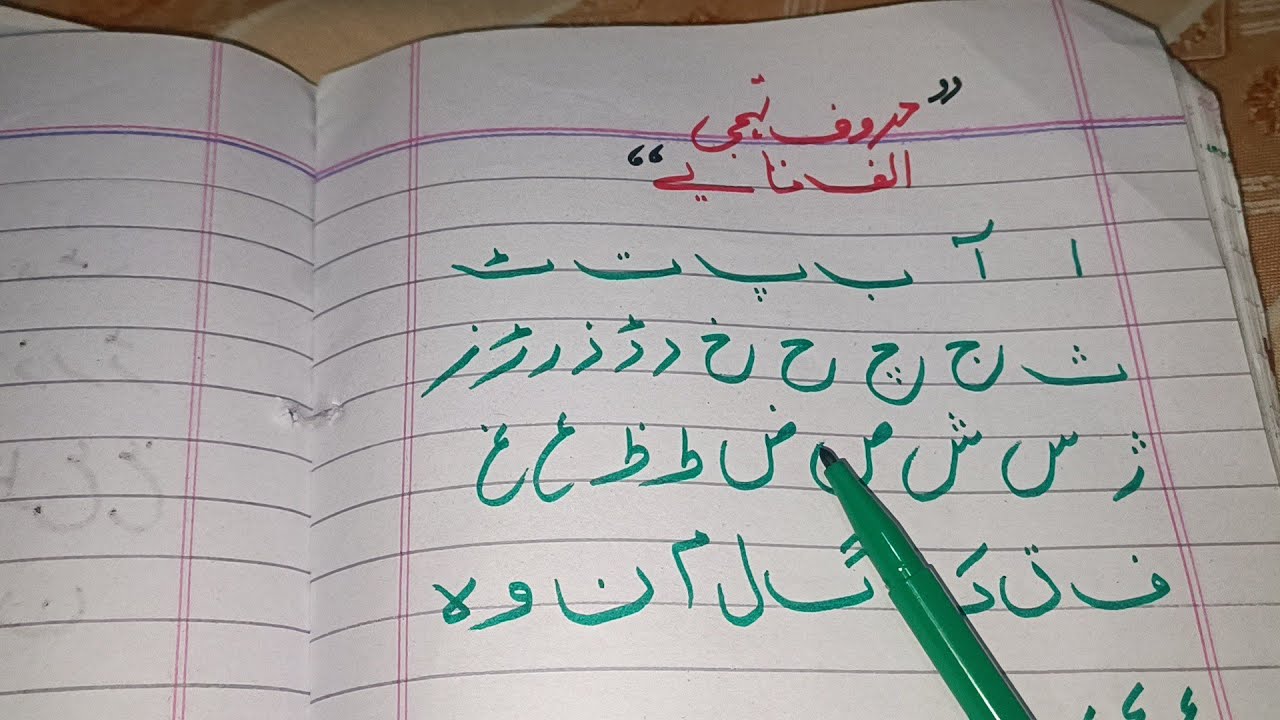 ”حروف تہجی
الف تا یے“
ا آ ب پ ت ٹ
ث ج چ ح خ د ڈ ذ ر ڑ ز
ژ س ش ص ض ط ظ ع غ
ف ق ک گ ل م ن و ہ
ء ی